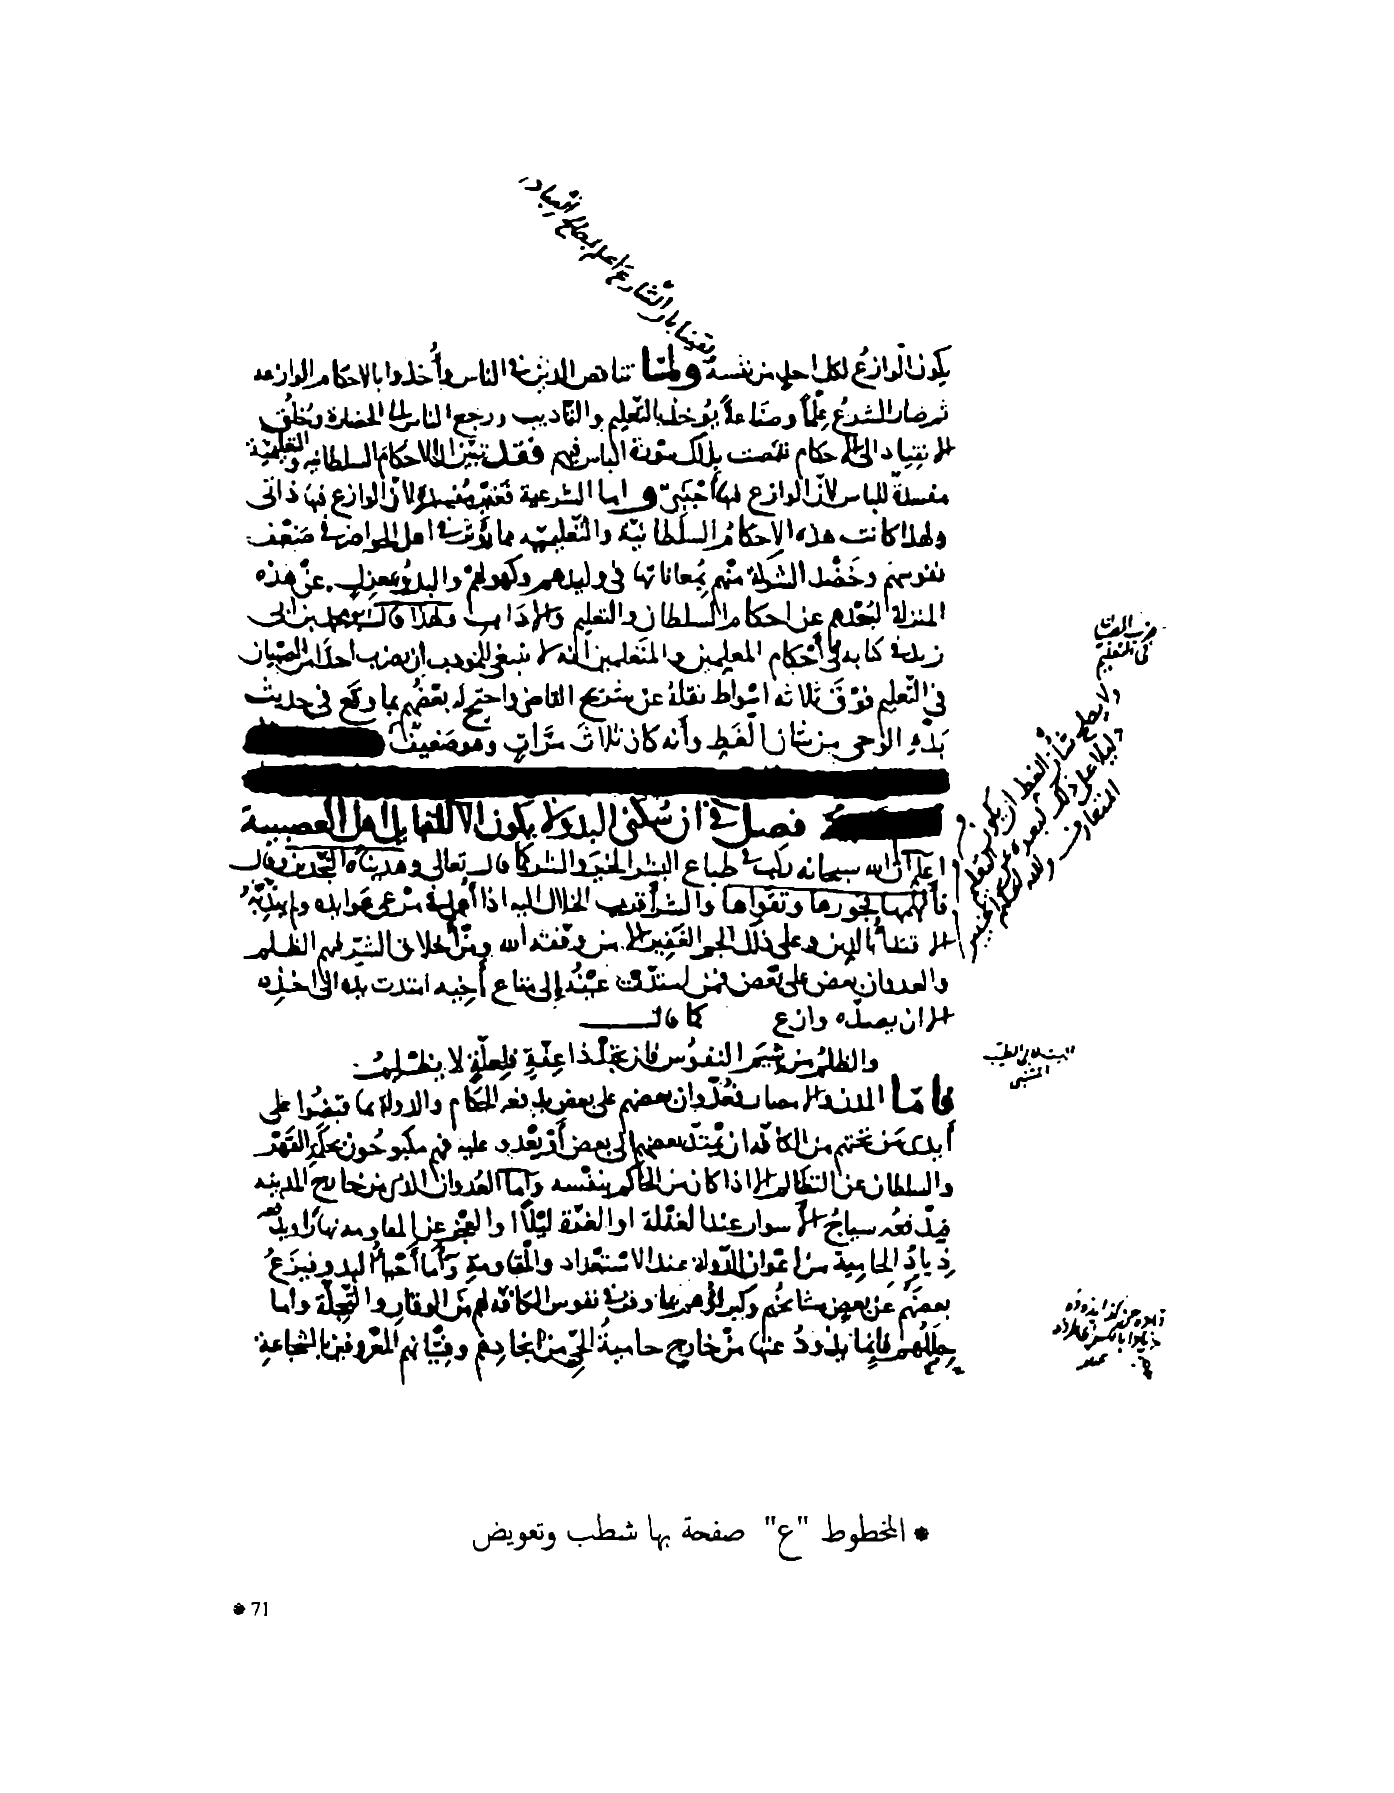 وتعينا بان الشارع اعلم بمصالح العباد
يكون الوازع لكل احد من نفسه ولما تناقص الدين في الناس وأخذوا بالاحكام الوازعه
ثم صار الشرع علما وصناعة يؤخذ بالتعليم والتأديب ورجع الناس الى الحضارة وخلق
الانقياد الى الاحكام نقصت بذلك سورة الباس فيهم فقد تبين ان الاحكام السلطانيه والتعليمية
مفسدة للباس لان الوازع فيها أجنبي واما الشرعية فغير مفسدة لان الوازع فيها ذاتي
ولهذا كانت هذه الاحكام السلطانية والتعليميه مما يؤثر في اهل الحواضر في ضعف
نفوسهم وخضد الشوكة منهم بمعاناتها في وليدهم وكهولهم والبدو بمعزل عن هذه
المنزلة لبعدهم عن احكام السلطان والتعليم والاداب ولهذا قال محمد بن ابي
زيد في كتابه في أحكام المعلمين والمتعلمين انه لا ينبغي للمودب ان يضرب احدا من الصبيان
في التعليم فوق ثلاثه اسواط نقله عن شريح القاضي واحتج له بعضهم بما وقع في حديث
بدء الوحي من شان الغط وأنه كان ثلاث مرات وهو ضعيف
فصل في ان سكنى البدو لا يكون الا للقبايل اهل العصبية
اعلم أن الله سبحانه ركب في طباع البشر الخير والشر كما قال تعالى وهديناه النجدين وقال
فألهمها فجورها وتقواها والشر أقرب الخلال اليه اذا أهمل في مرعى عوايده ولم يهذبه
الاقتداء بالدين وعلى ذلك الجم الغفير الا من وفقه الله ومن أخلاق الشر فيهم الظلم
والعدوان بعض على بعض فمن امتدت عينه إلى متاع أخيه امتدت يده الى اخذه
الا ان يصده وازع كما قال
والظلم من شيم النفوس فان تجد ذا عفة فلعلة لا يظلم
فاما المدن والامصار فعدوان بعضهم على بعض يدفعه الحكام والدولة بما قبضوا على
أيدي من تحتهم من الكافه ان يمتد بعضهم الى بعض أو يعدو عليه فهم مكبوحون بحكمة القهر
والسلطان عن التظالم الا اذا كان من الحاكم بنفسه وأما العدوان الذي من خارج المدينه
فيدفعه سياج الأسوار عند الغفلة او الغرة ليلا او العجز عن المقاومه نهارا ويدفعه
ذياد الحامية من اعوان الدولة عند الاستعداد والمقاومة وأما أحياء البدو فيزع
بعضهم عن بعض مشائخهم وكبراؤهم بما وقر في نفوس الكافه لهم من الوقار والتجلة واما
حللهم فإنما يذود عنها من خارج حامية الحي من انجادهم وفتيانهم المعروفين بالشجاعة
ضرب الصبيان
في التعليم
ولا يصلح شأن الغط ان يكون
دليلا على ذلك لبعده عن التعليم
المتعارف والله
البيت لابي الطيب
المتنبي
* المخطوط "ع" صفحة بها شطب وتعويض
* 71